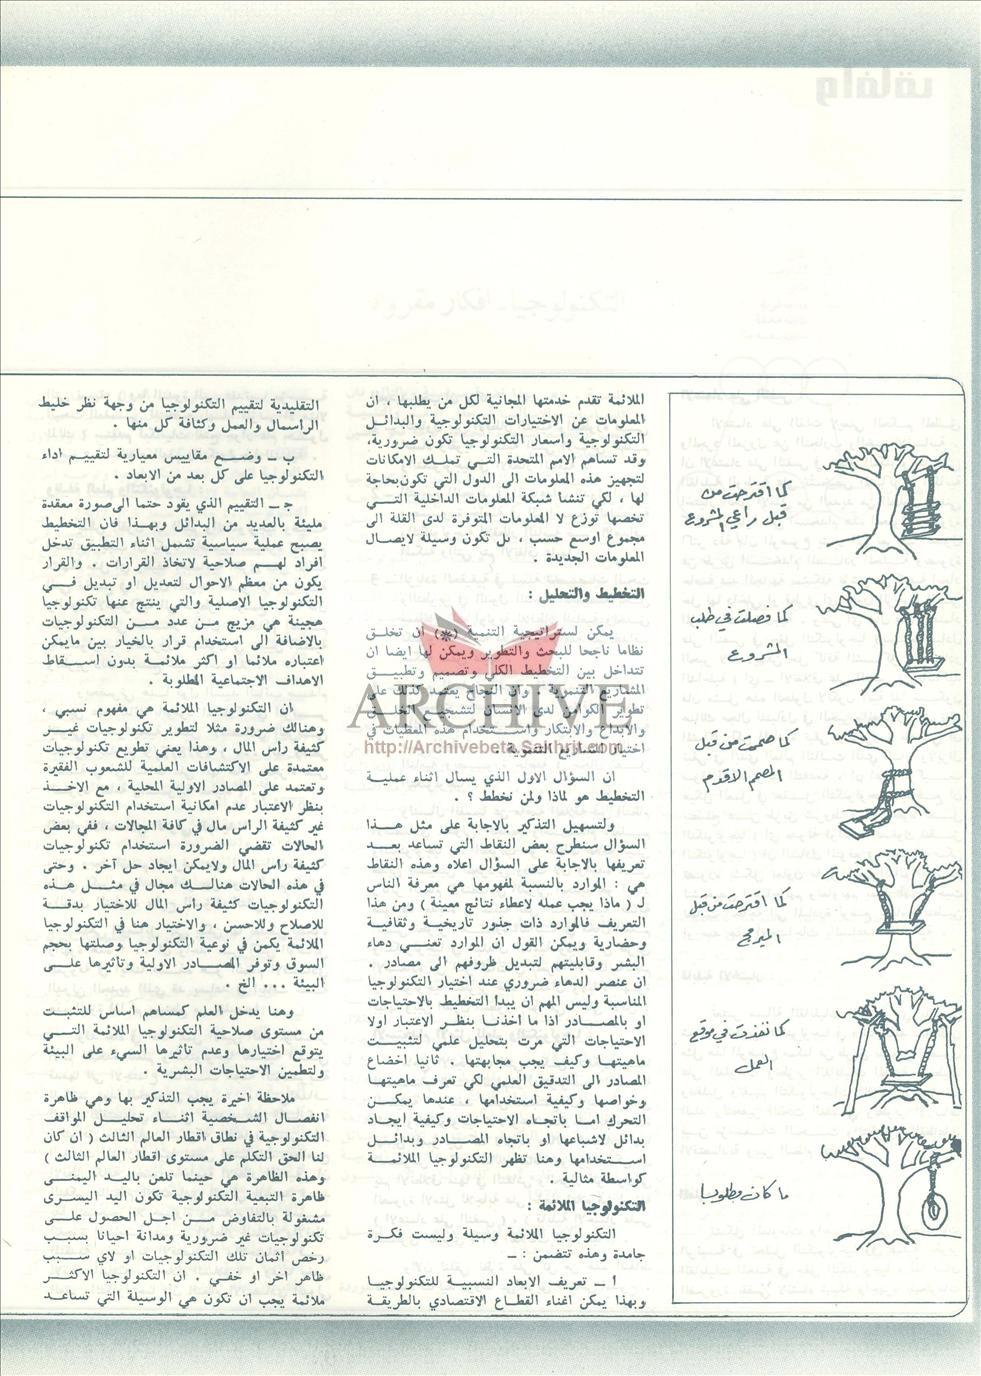 كما اقترحت من
قبل راعي المشروع
كما فصلت في طلب
المشروع
كما صممت من قبل
المصمم الاقدم
كما اقترحت من قبل
المبرمج
كما نفذت في موقع
العمل
ما كان مطلوبا
الملائمة تقدم خدمتها المجانية لكل من يطلبها ، ان
المعلومات عن الاختيارات التكنولوجية والبدائل
التكنولوجية واسعار التكنولوجيا تكون ضرورية،
وقد تساهم الامم المتحدة التي تملك الامكانات
لتجهيز هذه المعلومات الى الدول التي تكون بحاجة
لها ، لكي تنشأ شبكة المعلومات الداخلية التي
تخصها توزع لا المعلومات المتوفرة لدى القلة الى
مجموع اوسع حسب ، بل تكون وسيلة لايصال
المعلومات الجديدة .
التخطيط والتحليل :
يمكن لستراتيجية التنمية (*) ان تخلق
نظاما ناجحا للبحث والتطوير ويمكن لها ايضا ان
تتداخل بين التخطيط الكلي وتصميم وتطبيق
المشاريع التنموية . وان النجاح يعتمد كذلك على
تطوير الكوامن لدى الانسان لتشجيع الخلق
والابداع والابتكار واستخدام هذه المعطيات في
اختيار المشاريع التنموية .
ان السؤال الاول الذي يسأل اثناء عملية
التخطيط هو لماذا ولمن نخطط ؟ .
ولتسهيل التذكير بالاجابة على مثل هذا
السؤال سنطرح بعض النقاط التي تساعد بعد
تعريفها بالاجابة على السؤال اعلاه وهذه النقاط
هي : الموارد بالنسبة لمفهومها هي معرفة الناس
لـ ( ماذا يجب عمله لاعطاء نتائج معينة ) ومن هذا
التعريف فالموارد ذات جذور تاريخية وثقافية
وحضارية ويمكن القول ان الموارد تعني دهاء
البشر وقابليتهم لتبديل ظروفهم الى مصادر .
ان عنصر الدهاء ضروري عند اختيار التكنولوجيا
المناسبة وليس المهم ان يبدا التخطيط بالاحتياجات
او بالمصادر اذا ما أخذنا بنظر الاعتبار اولا
الاحتياجات التي مرت بتحليل علمي لتثبيت
ماهيتها وكيف يجب مجابهتها . ثانيا اخضاع
المصادر الى التدقيق العلمي لكي تعرف ماهيتها
وخواصها وكيفية استخدامها ، عندها يمكن
التحرك اما باتجاه الاحتياجات وكيفية ايجاد
بدائل لاشباعها او باتجاه المصادر وبدائل
استخدامها وهنا تظهر التكنولوجيا الملائمة
كواسطة مثالية .
التكنولوجيا الملائمة :
التكنولوجيا الملائمة وسيلة وليست فكرة
جامدة وهذه تتضمن : ــ
أ ــ تعريف الابعاد النسبية للتكنولوجيا
وبهذا يمكن اغناء القطاع الاقتصادي بالطريقة
التقليدية لتقييم التكنولوجيا من وجهة نظر خليط
الراسمال والعمل وكثافة كل منها .
ب ــ وضع مقاييس معيارية لتقييم اداء
التكنولوجيا على كل بعد من الابعاد .
جـ ــ التقييم الذي يقود حتما الى صورة معقدة
مليئة بالعديد من البدائل وبهذا فان التخطيط
يصبح عملية سياسية تشمل اثناء التطبيق تدخل
أفراد لهم صلاحية لاتخاذ القرارات . والقرار
يكون من معظم الاحوال لتعديل او تبديل في
التكنولوجيا الاصلية والتي ينتج عنها تكنولوجيا
هجينة هي مزيج من عدد من التكنولوجيات
بالاضافة الى استخدام قرار بالخيار بين مايمكن
اعتباره ملائما او اكثر ملائمة بدون اسقاط
الاهداف الاجتماعية المطلوبة .
ان التكنولوجيا الملائمة هي مفهوم نسبي ،
وهناك ضرورة مثلا لتطوير تكنولوجيات غير
كثيفة راس المال ، وهذا يعني تطويع تكنولوجيات
معتمدة على الاكتشافات العلمية للشعوب الفقيرة
وتعتمد على المصادر الاولية المحلية ، مع الاخذ
بنظر الاعتبار عدم امكانية استخدام التكنولوجيات
غير كثيفة الراس مال في كافة المجالات ، ففي بعض
الحالات تقضي الضرورة استخدام تكنولوجيات
كثيفة راس المال ولايمكن ايجاد حل آخر . وحتى
في هذه الحالات هنالك مجال في مثل هذه
التكنولوجيات كثيفة رأس المال للاختيار بدقة
للاصلاح وللاحسن ، والاختيار هنا في التكنولوجيا
الملائمة يكمن في نوعية التكنولوجيا وصلتها بحجم
السوق وتوفر المصادر الاولية وتاثيرها على
البيئة ... الخ .
وهنا يدخل العلم كمساهم اساس للتثبت
من مستوى صلاحية التكنولوجيا الملائمة التي
يتوقع اختيارها وعدم تأثيرها السيء على البيئة
ولتطمين الاحتياجات البشرية .
ملاحظة اخيرة يجب التذكير بها وهي ظاهرة
انفصال الشخصية اثناء تحليل المواقف
التكنولوجية في نطاق اقطار العالم الثالث ( ان كان
لنا الحق التكلم على مستوى اقطار العالم الثالث )
وهذه الظاهرة هي حينما تلعن باليد اليمنى
ظاهرة التبعية التكنولوجية تكون اليد اليسرى
مشغولة بالتفاوض من اجل الحصول على
تكنولوجيات غير ضرورية ومدانة احيانا بسبب
رخص اثمان تلك التكنولوجيات او لاي سبب
ظاهر اخر او خفي . ان التكنولوجيا الاكثر
ملائمة يجب ان تكون هي الوسيلة التي تساعد
ARCHIVE
http://Archivebeta.Sakhrit.com